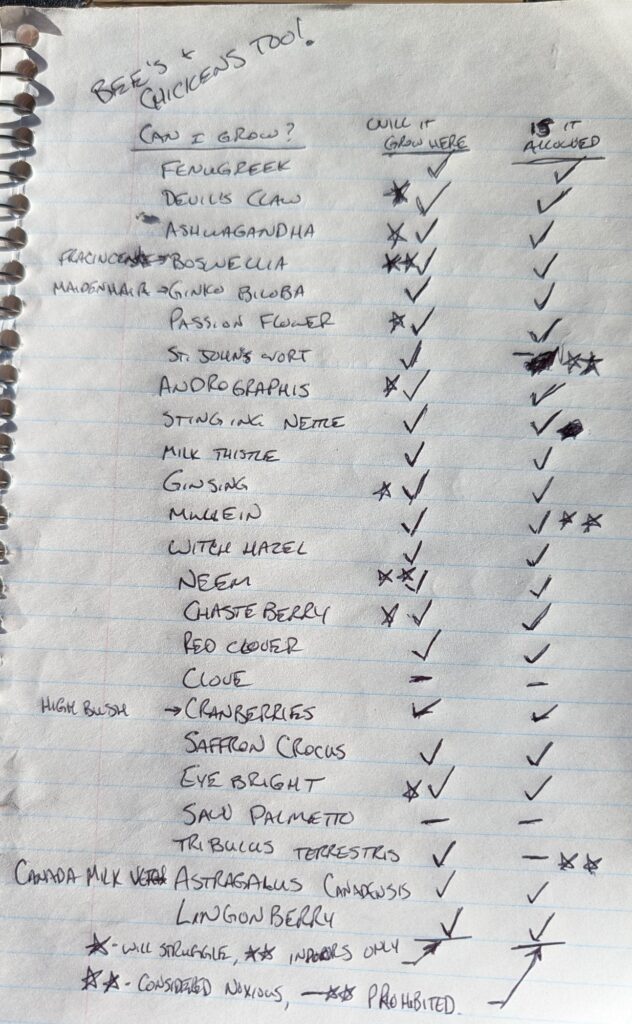 BEE'S +
CHICKENS TOO!
CAN I GROW? WILL IT GROW HERE IS IT ALLOWED
FENUGREEK ✓ ✓
DEVILS CLAW ★✓ ✓
ASHWAGANDHA ☆✓ ✓
→ BOSWELLIA ★★✓ ✓
MAIDENHAIR → GINKO BILOBA ✓ ✓
PASSION FLOWER ☆✓ ✓
ST. JOHN'S WORT ✓ — ☆☆
ANDROGRAPHIS ☆✓ ✓
STINGING NETTLE ✓ ✓
MILK THISTLE ✓ ✓
GINSING ☆✓ ✓
MULLEIN ✓ ✓ ☆☆
WITCH HAZEL ✓ ✓
NEEM ☆☆✓ ✓
CHASTE BERRY ☆✓ ✓
RED CLOVER ✓ ✓
CLOVE — —
HIGH BUSH → CRANBERRIES ✓ ✓
SAFFRON CROCUS ✓ ✓
EYE BRIGHT ☆✓ ✓
SAW PALMETTO — —
TRIBULUS TERRESTRIS ✓ — ☆☆
CANADA MILK ASTRAGALUS CANADENSIS ✓ ✓
LINGONBERRY ✓ ✓
☆ - WILL STRUGGLE, ☆☆ INDOORS ONLY
☆☆ - CONSIDERED NOXIOUS, —☆☆ PROHIBITED.